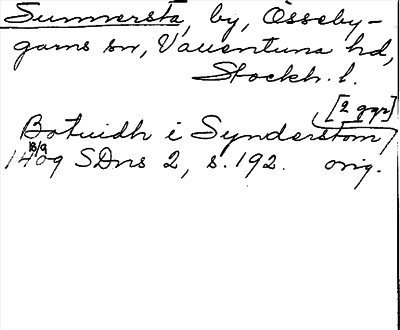 Sunnersta, by, Össeby-
garns sn, Vallentuna hd,
Stockh. l.
[2 ggr]
Botuidh i Synderstom
18/9
1409 SDns 2, s. 192. orig.